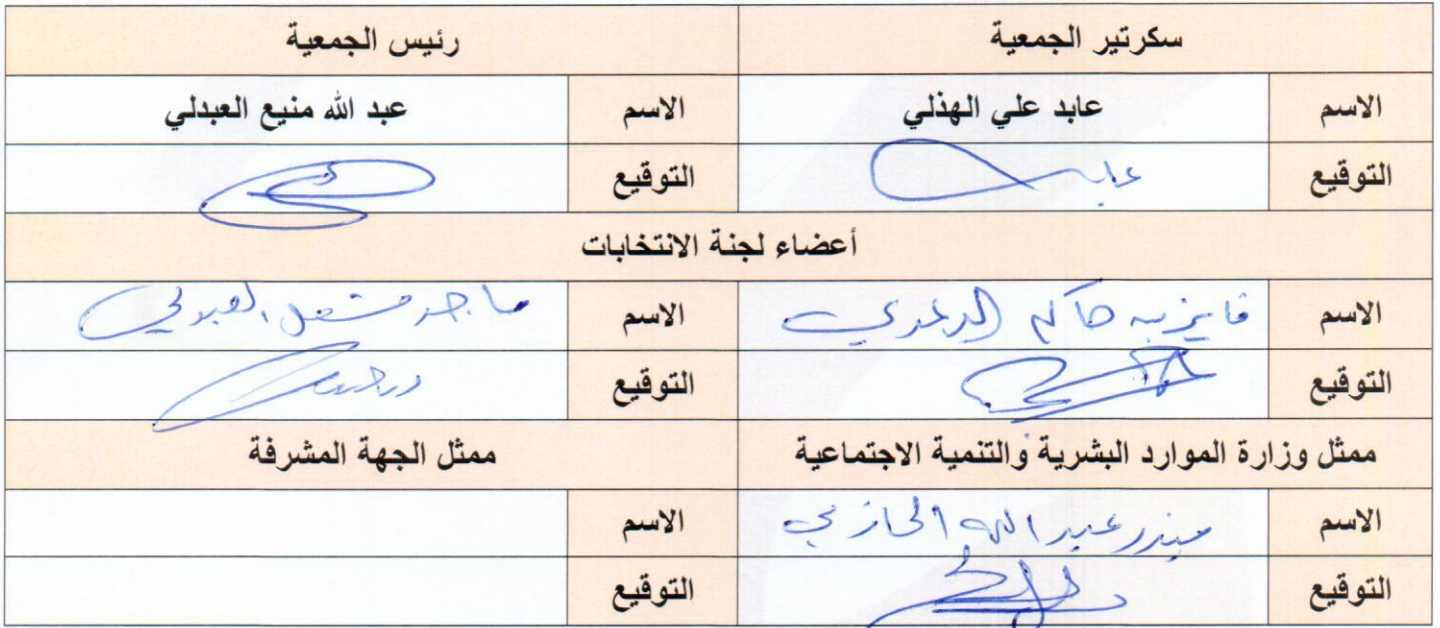 سكرتير الجمعية رئيس الجمعية
الاسم عابد علي الهذلي الاسم عبد الله منيع العبدلي
التوقيع عابد التوقيع
أعضاء لجنة الانتخابات
الاسم فايز بن حاكم الاسم ماجد مشعل العبدلي
التوقيع التوقيع
ممثل وزارة الموارد البشرية والتنمية الاجتماعية ممثل الجهة المشرفة
الاسم عبد الله الحازمي الاسم
التوقيع التوقيع